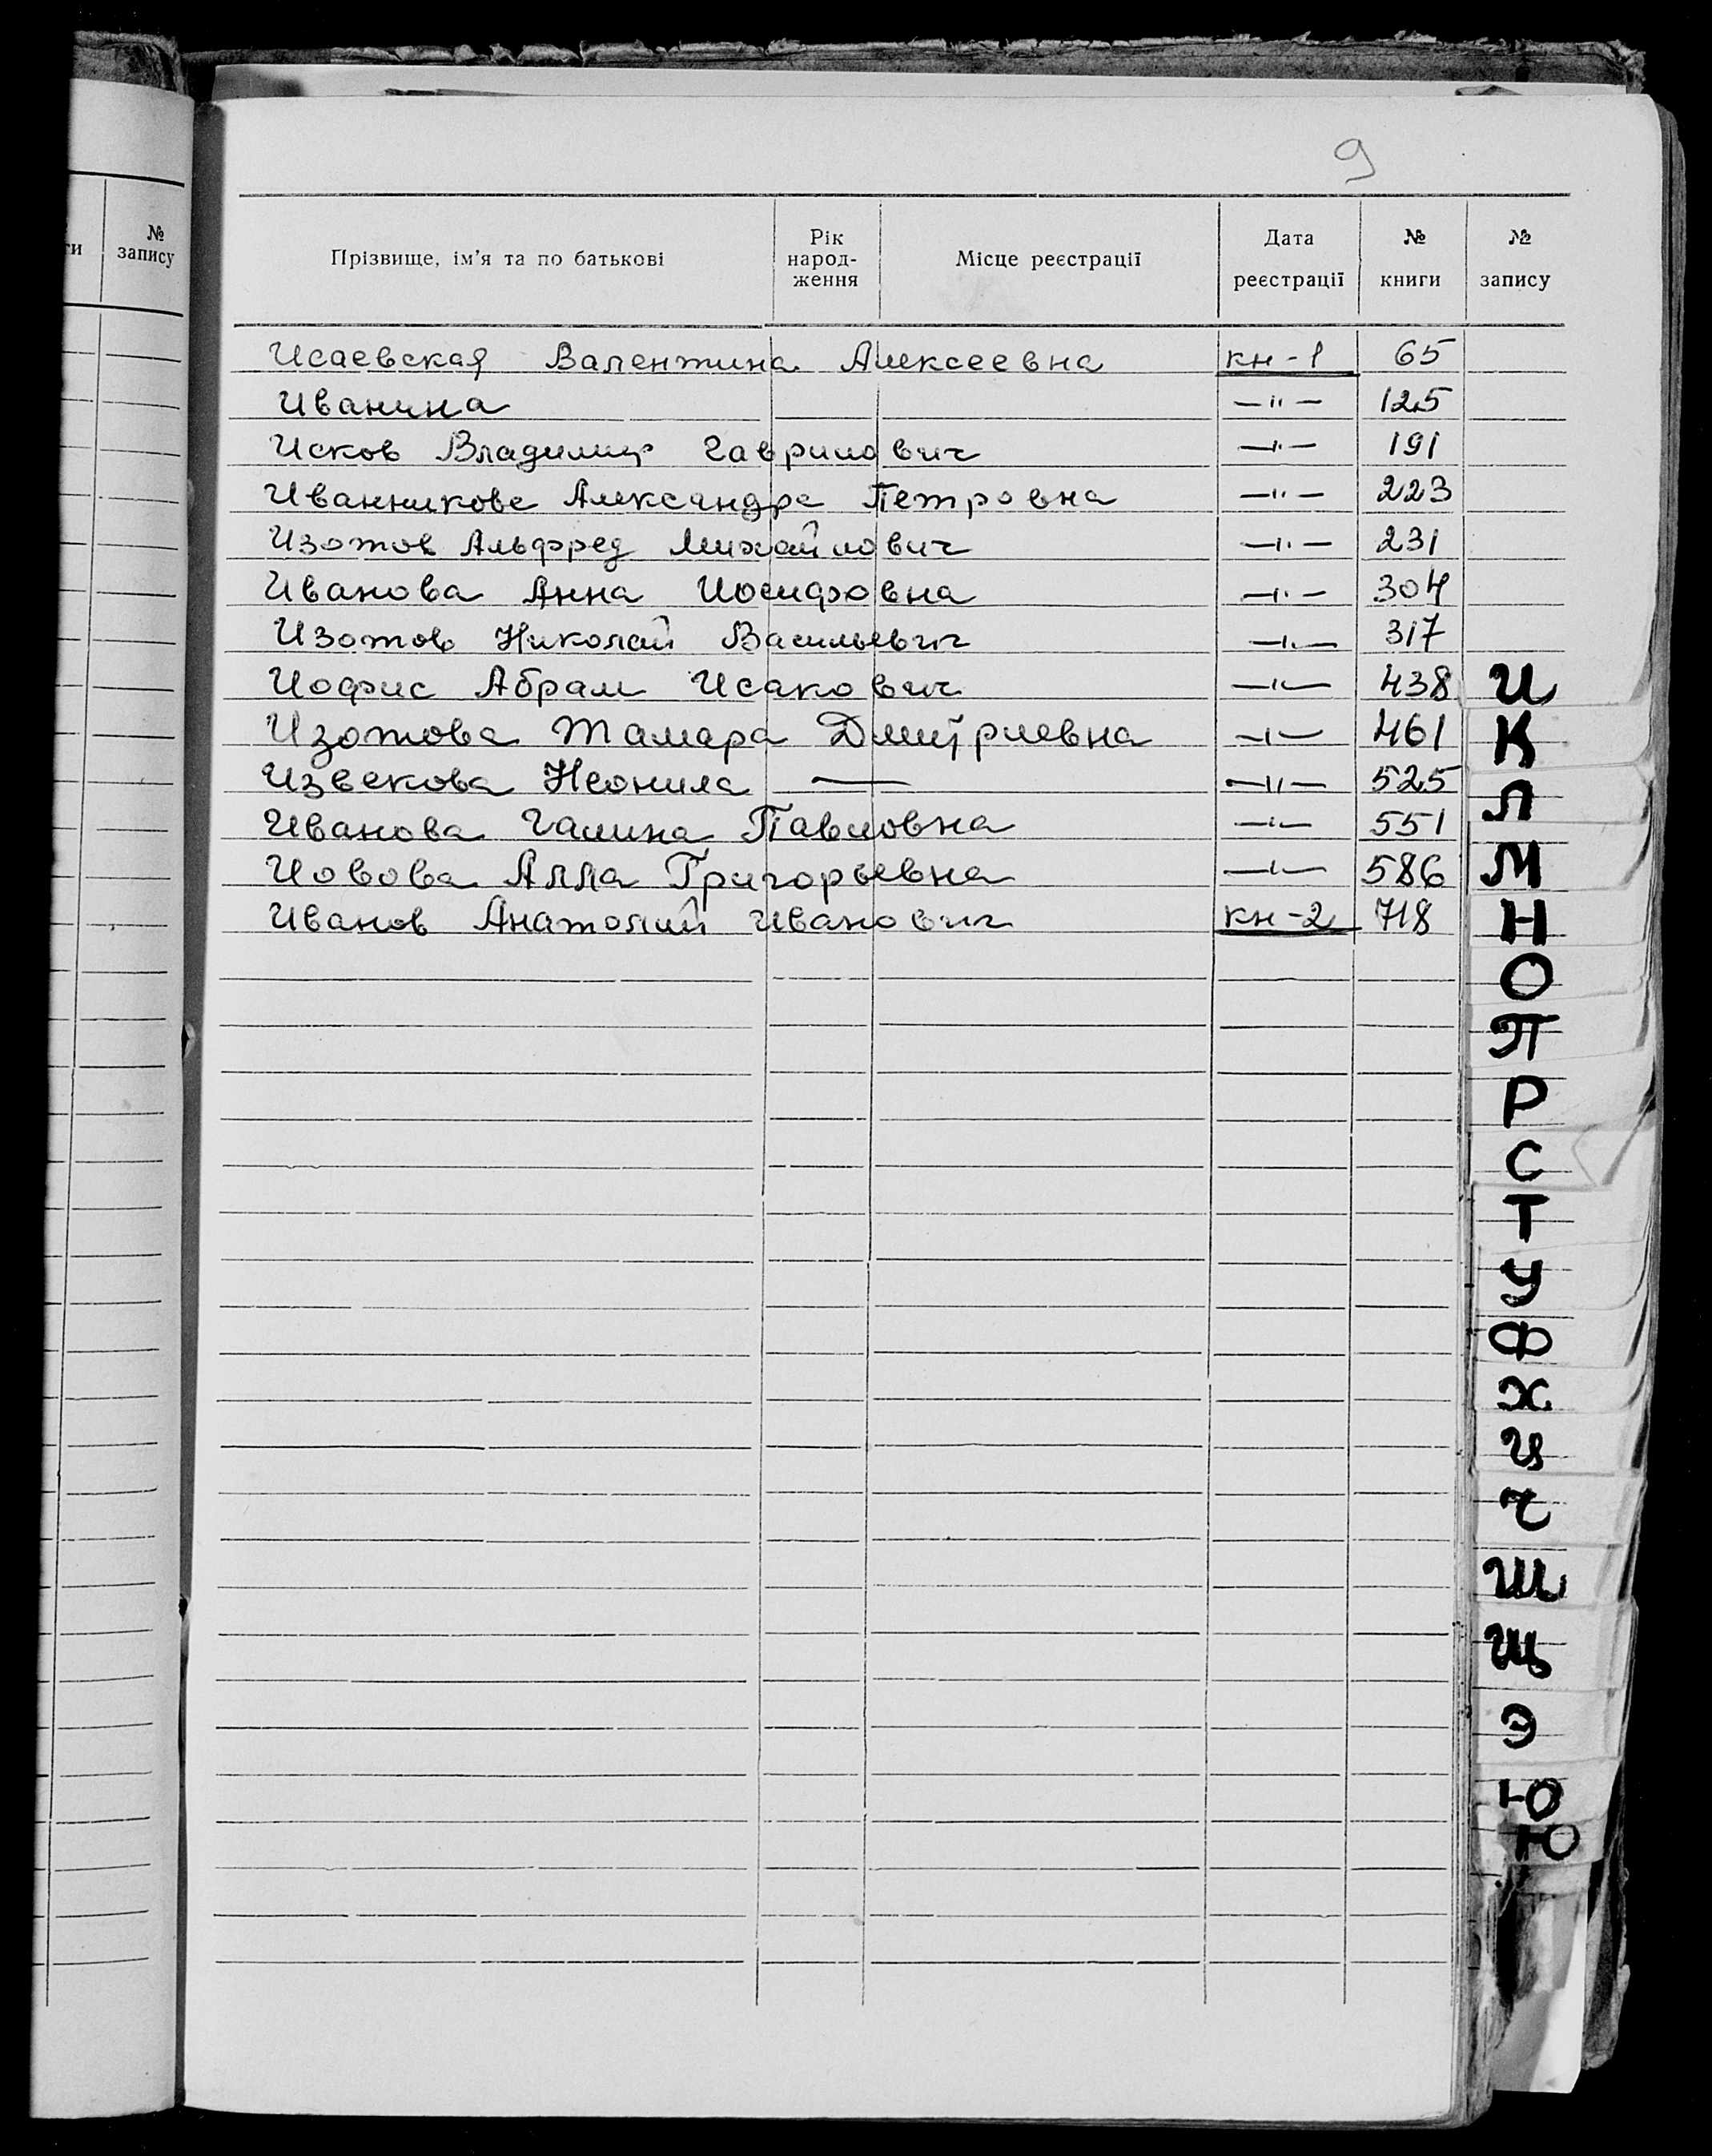 9
ги
№ запису
Прізвище, ім'я та по батькові Рік народження Місце реєстрації Дата реєстрації № книги № запису
Исаевская Валентина Алексеевна кн-1 65
Иванина —"— 125
Исков Владимир Гаврилович —"— 191
Иванникова Александра Петровна —"— 223
Изотов Альфред Михайлович —"— 231
Иванова Анна Иосифовна —"— 304
Изотов Николай Васильевич —"— 317
Иофис Абрам Исакович —"— 438
Изотова Тамара Дмитриевна —"— 461
Извекова Неонила — —"— 525
Иванова Галина Павловна —"— 551
Иовова Алла Григорьевна —"— 586
Иванов Анатолий Иванович кн-2 718
И
К
Л
М
Н
О
П
Р
С
Т
У
Ф
Х
Ц
Ч
Ш
Щ
Э
Ю
Ю